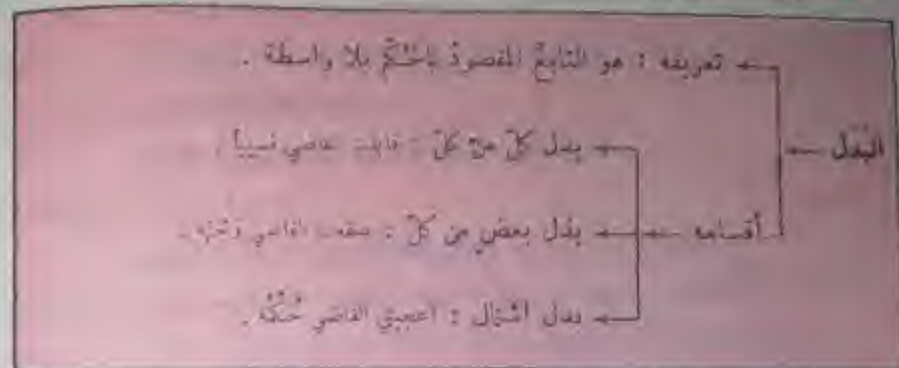 البَدَل
تعريفه : هو التابعُ المقصودُ بالحُكْمِ بلا واسطة .
أقسامه
بدل كلّ من كلّ : قابلت القاضي
بدل بعضٍ من كلّ : القاضي
بدل اشتمال : أعجبني القاضي حُكْمُه .